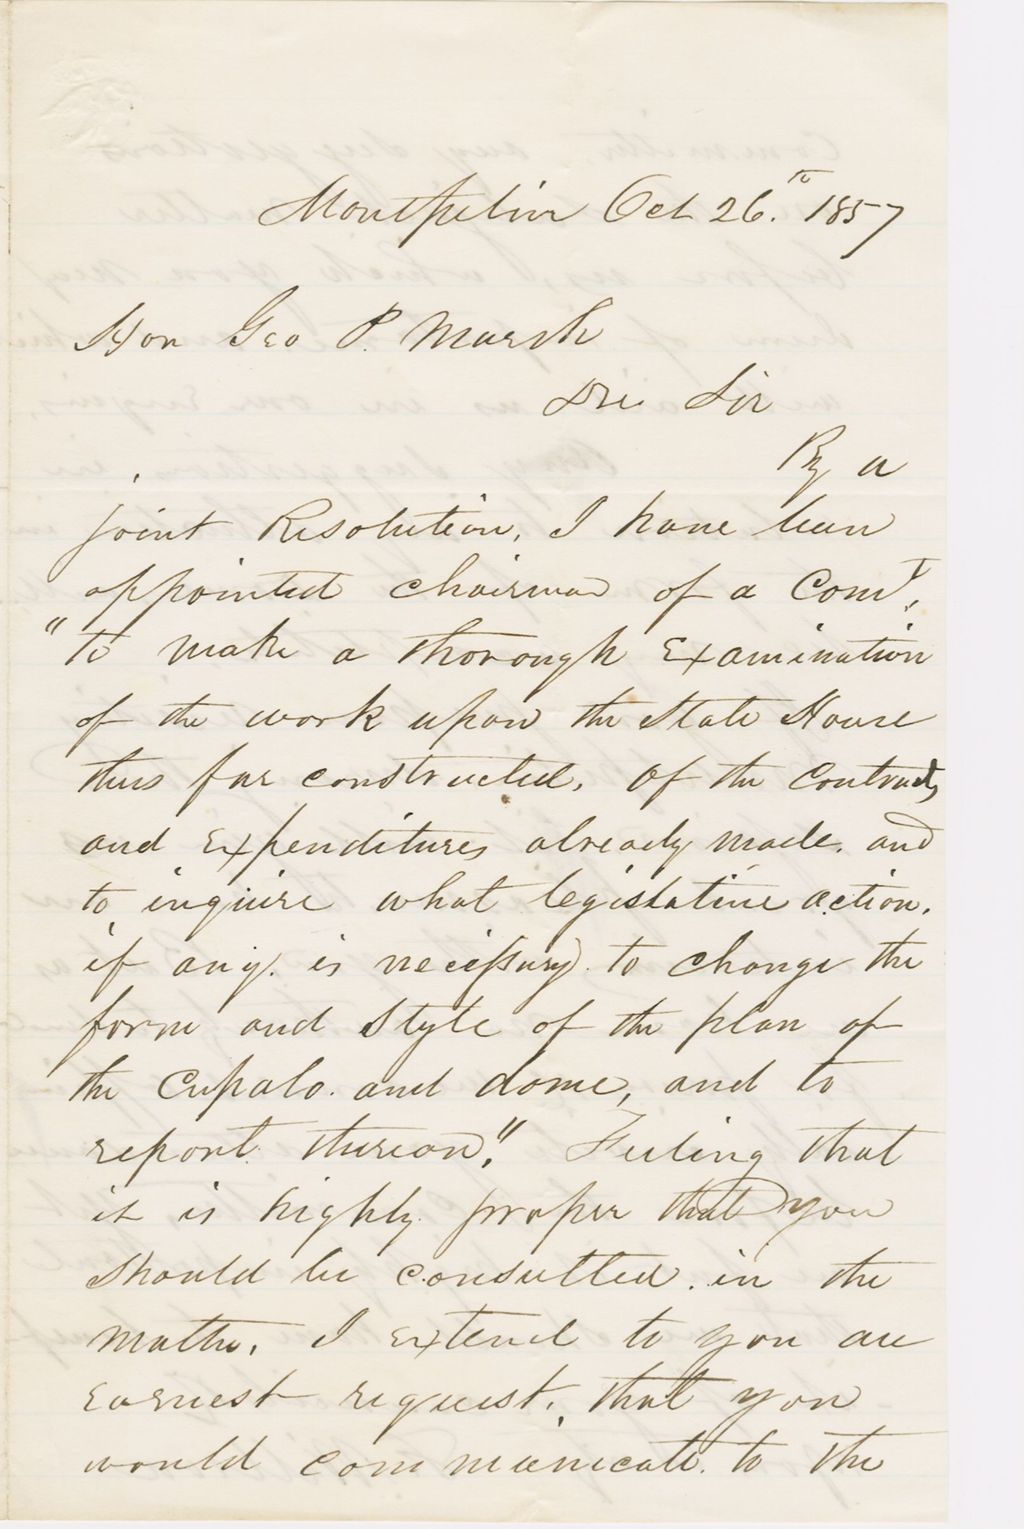 Montpelier Oct 26.th 1857
Hon Geo P. Marsh
Dr Sir
By a
joint Resolution, I have been
appointed chairman of a Comt,
"to make a thorough Examination
of the work upon the State House
thus far constructed, of the Contracts
and Expenditures already made, and
to inquire what legislative action,
if any, is necessary to change the
form and style of the plan of
the Cupalo and dome, and to
report thereon." Feeling that
it is highly proper that you
should be consulted in the
matter, I extend to you an
earnest request, that you
would communicate to the